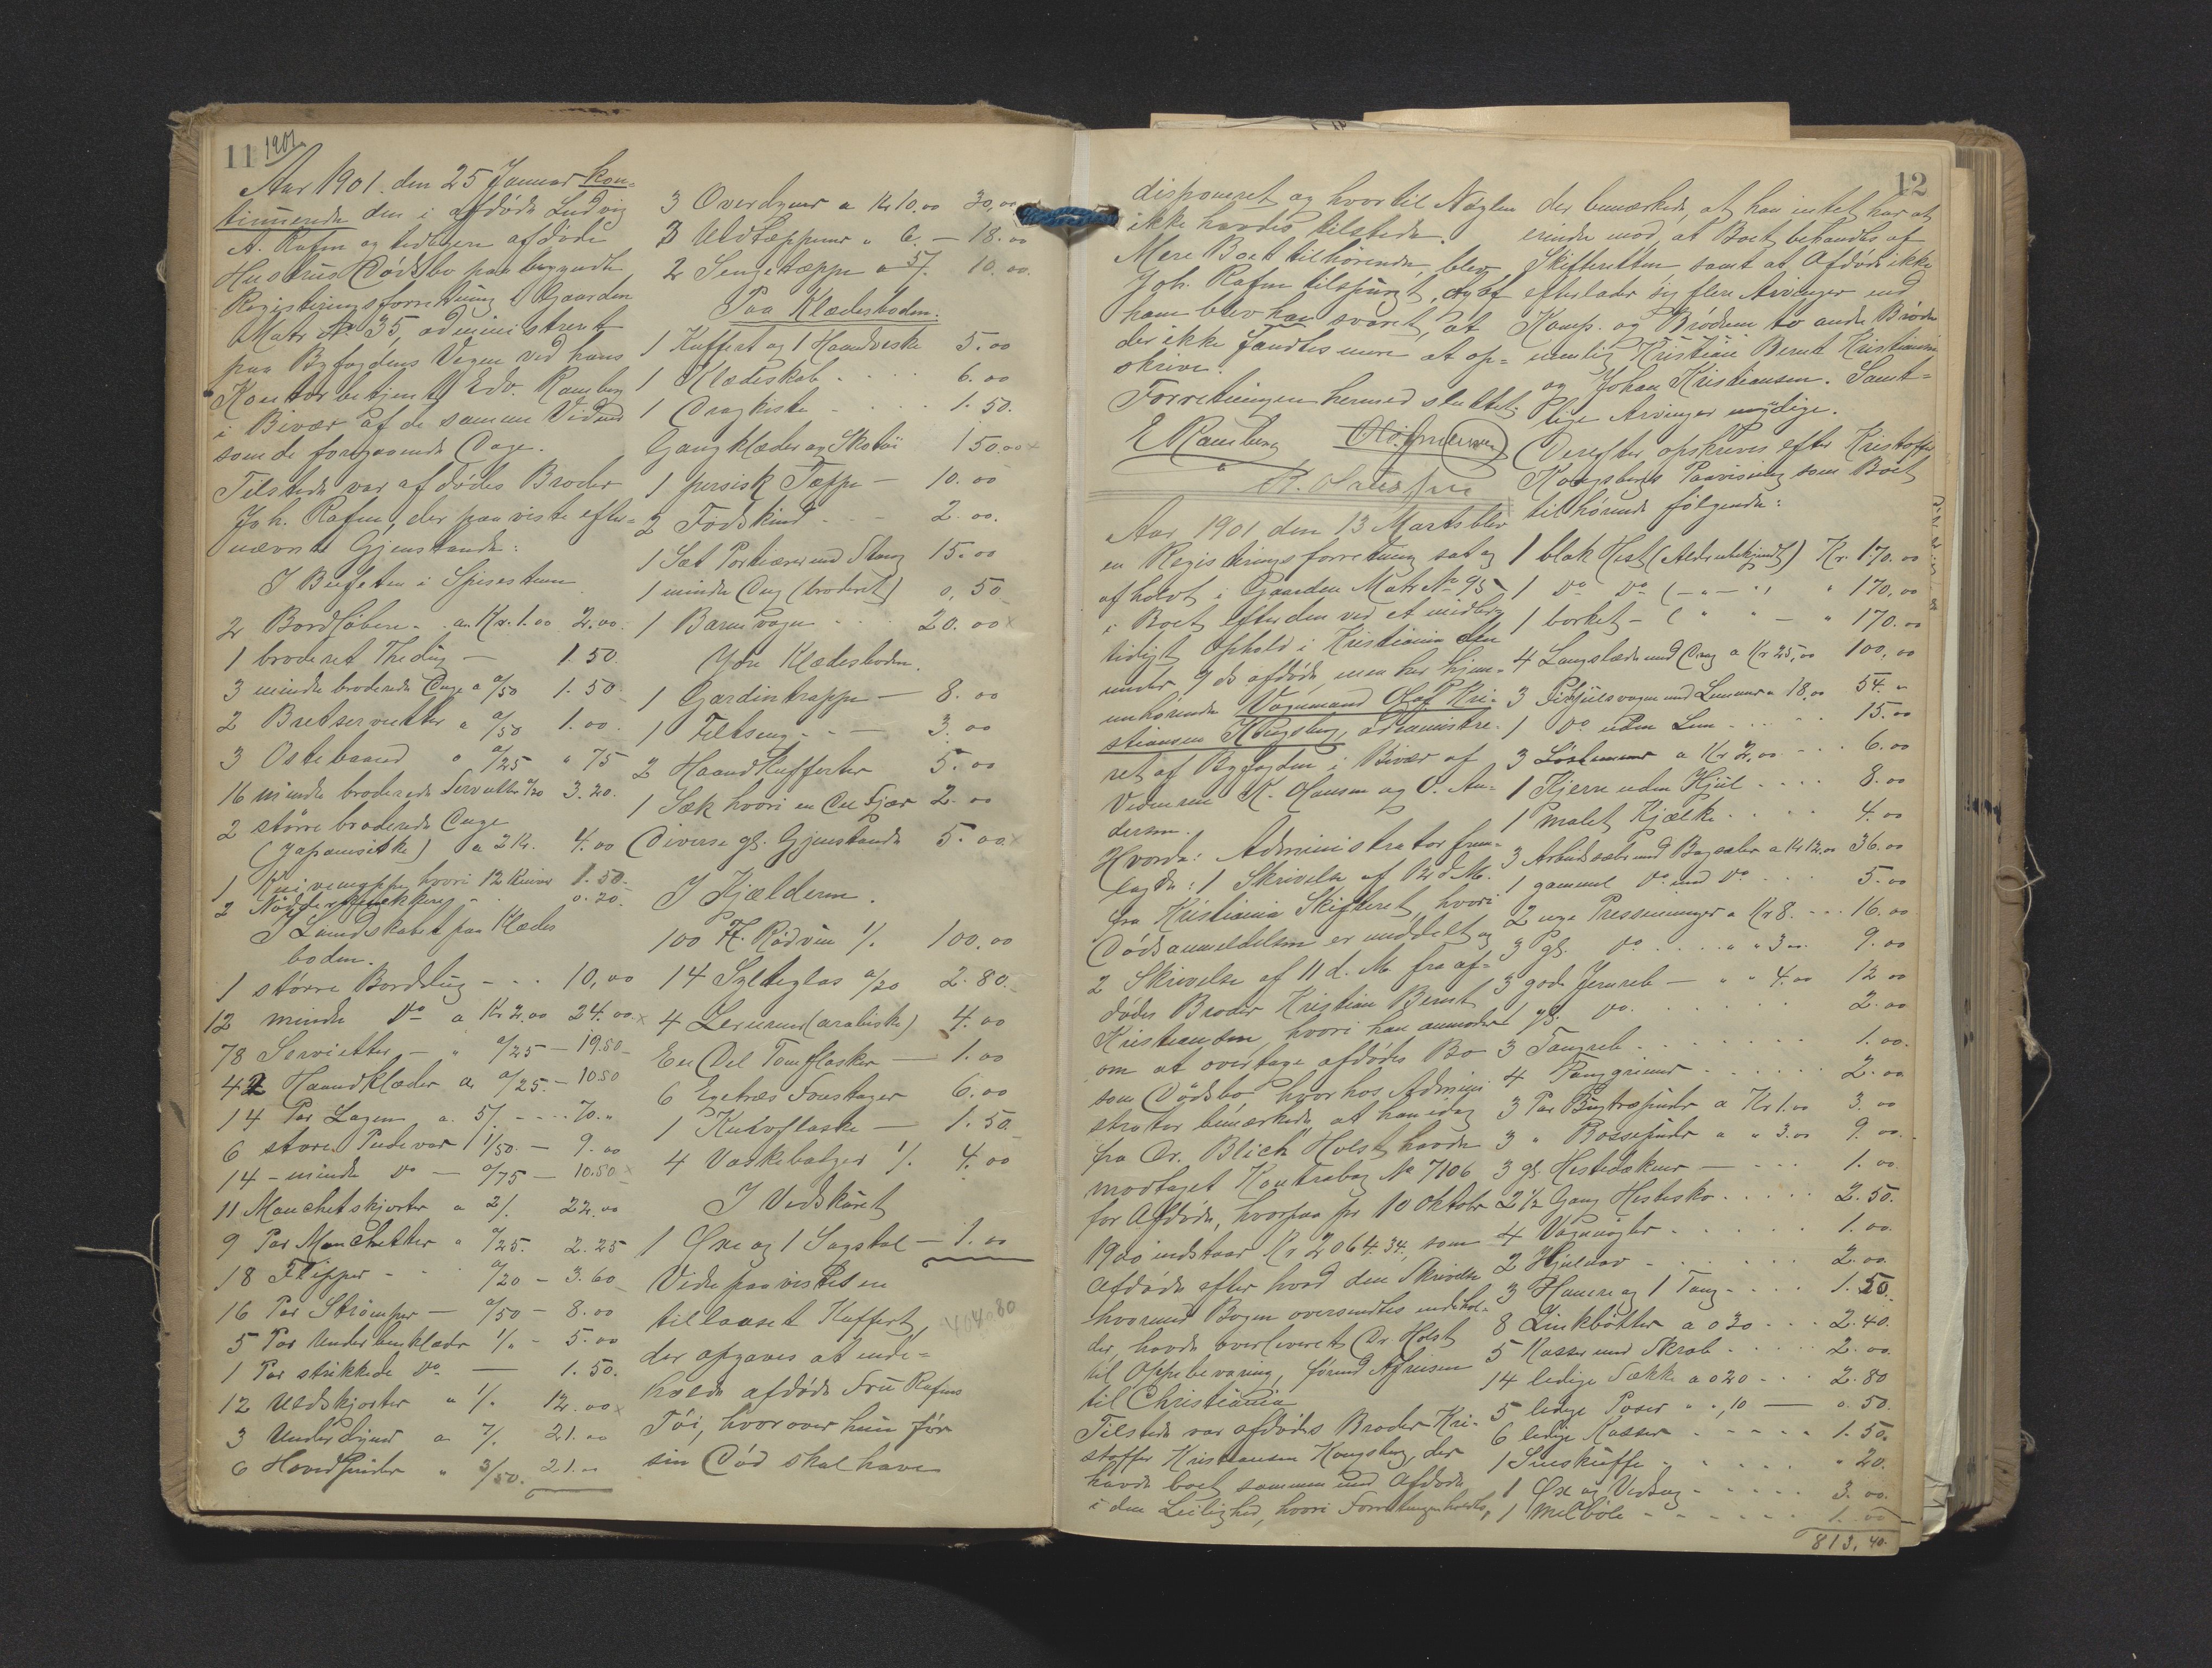 11 1901.
Aar 1901. den 25 Januar kon-
tinueredes den i afdøde Ludvig
A. Rafen og tidligere afdøde
Hustrus Dødsbo paabegyndte
Registreringsforretning i Gaarden
Matr. No 35, administreret
paa Byfogdens Vegne ved hans
Kontorbetjent Edv. Ramberg
i Bivær af de samme Vidner
som de foregaaende Dage.
Tilstede var afdødes Broder
Joh. Rafen, der paaviste efter-
nævnte Gjenstande:
I Buffeten i Spisestuen
2 Bordløbere a Kr. 1.00 2.00
1 broderet Thedug — 1.50
3 mindre broderede Duge a 0/50 1.50
2 Bretservietter a 0/50 1.00
3 Ostebaand a 0/25 " 75
16 mindre broderede Servietter 0/20 3.20
2 større broderede Duge
(Japanesiske) a 2 Kr. 4.00
1 Knivemappe hvori 12 Knive 1.50
2 Nøddeknækkere 0.20
I Linnedskabet paa Klædes
boden.
1 større Borddug - - - 10,00
12 mindre Do a Kr 2,00 24.00
78 Servietter — " 0/25 — 19.50
42 Haandklæder a 0/25 - 10.50
14 Par Lagen a 5/. - - - 70.-
6 store Pudevar 1/50 — 9.00
14 - mindre Do — 0/75 — 10.50
11 Manchetskjorter a 2/. 22.00
9 Par Manchetter " 0/25. 2.25
18 Flipper - - 0/20 - 3.60
16 Par Strømper — 0/50 - 8.00
5 Par Underbenklæder 1/. - 5.00
1 Par strikkede Do — 1.50.
12 Uldskjorter a 1/. 12.00
3 Underdyner a 7/. 21.00
6 Hovedpuder " 3/50. 21.00
3 Overdyner a Kr 10.00 30,00
3 Uldtæpper " 6. — 18.00
2 Sengetæpper a 5/. 10.00.
Paa Klædesboden.
1 Kuffert og 1 Haandveske 5.00
1 Klædeskab - - - 6.00
1 Dragkiste - - - 1.50.
Gangklæder og Skotøi 150.00
1 persisk Tæppe — 10.00
2 Fodskind - - 2.00.
1 Sæt Portierer med Stang 15.00
1 mindre Dug (broderet) 0,50
1 Barnevogn - - 20.00
Ydre Klædesboden.
1 Gardintrappe — 8.00
1 Feltseng - - — 3.00
2 Haandkufferter 5.00
1 Sæk hvori en Del Fjær 2.00
Diverse gl. Gjenstande 5.00
I Kjælderen.
100 Fl. Rødvin 1/. 100.00
14 Sylteglas 0/20 2.80
4 Lerurner (arabiske) 4.00
En Del Tomflasker — 1.00
6 Egetræs Foustager 6.00
1 Kurvflaske — 1.50
4 Vaskebaljer 1/. 4.00
I Vedskuret
1 Øxe og 1 Sagstol — 1.00
Videre paavistes en
tillaaset Kuffert,
404.80
der opgaves at inde-
holde afdøde Fru Rafens
Tøi, hvorover hun før
sin Død skal have
12
disponeret og hvortil Nøglen
ikke havdes tilstede.
Mere Boet tilhørende, blev
Joh. Rafen tilspurgt, og af
ham blev han svaret, at
der ikke fandtes mere at op-
skrive.
Forretningen hermed sluttet.
E Ramberg
Aar 1901 den 13 Marts blev
en Registreringsforretning sat og
afholdt i Gaarden Matr No 95
i Boet efter den ved et midler-
tidigt Ophold i Kristiania den
under 9 ds afdøde, men her hjem-
mehørende Vognmand Olaf Kri-
stiansen Kongsberg, administre-
ret af Byfogden i Bivær af
Vidnerne K. Hansen og O. An-
dersen.
Hvorda: Administrator frem-
lagde: 1 Skrivelse af 12 d. M.
fra Kristiania Skifteret, hvori
Dødsanmeldelsen er meddelt og
2 Skrivelse af 11 d. M. fra af-
dødes Broder Kristian Bernt
Kristiansen, hvori han anmoder
om at overtage afdødes Bo
som Dødsbo, hvorhos Admini
strator bemærkede at han idag
fra Dr. Blich Holst havde
modtaget Kontrabog No 7106
for Afdøde, hvorpaa pr 10 Oktober
1900 indstaar Kr 2064.34, som
Afdøde efter hvad den Skrivelse
hvormed Bogen oversendtes indehol-
der, havde overleveret Dr. Holst
til Opbevaring, førend Afreisen
til Christiania
Tilstede var afdødes Broder Kri-
stoffer Kristiansen Kongsberg, der
havde boet sammen med Afdøde
i den Leilighed, hvori Forretningen holdtes,
der bemærkede, at han intet har at
erindre mod, at Boet behandles af
Skifteretten, samt at Afdøde ikke
efterlader sig flere Arvinger end
Komp. og Brødrene to andre Brødre
nemlig Kristian Bernt Kristiansen
og Johan Kristiansen. Samt-
lige Arvinger myndige.
Derefter opskreves efter Kristoffer
Kongsbergs Paavisning som Boet
tilhørende følgende:
1 blak Hest (Alder ubekjendt) Kr. 170.00
1 Do Do ( — " — " 170,00
1 borket - ( " " — " 170.00
4 Langslæder med Drag a Kr 25,00 100,00
3 Firhjulsvogne med Lemmer a 18.00 54. "
1 Do uden Lem - - - 15.00
3 Løslemmer a Kr 2,00 - - - 6.00
1 Kjerre uden Hjul - - - - 8.00
1 malet Kjælke - - - - 4.00
3 Arbeidssæler med Bagsæler a Kr 12.00 36.00
1 gammel Do med Do - - - 5.00
2 nye Presseninger a Kr 8. - - - 16.00
3 gl. Do - - - - " " 3.00 9.00
3 gode Jernreb — " " 4.00 12.00
1 gl. Do. - - - - - 2.00
3 Tougreb - - - - - - 1.00.
4 - - - - - 2.00
3 Par a Kr 1.00 3.00
3 " Bossepuder a " 3.00 9.00
3 gl. Hestedækner — - - - 1.00
2 1/2 Gang Hestesko - - - - - 2.50.
4 Vognnøgler - - - - - 1.00
2 Hjulnav - - - - - - 2.00
3 Hamre og 1 Tang - - - - 1.50.
8 Zinkbøtter a 0 30 - - - 2.40.
5 Kasser med Skrab - - - - 2.00
14 ledige Sække a 0 20 - - - 2.80
5 ledige Poser " " ,10 — 0.50
6 ledige Kasser - - - - - 1.50.
1 Sneskuffe - - - - - " 20.
1 Øx og Vedsag - - - - - 3.00.
1 Melbøle - - - - - - 1.00
813.40.